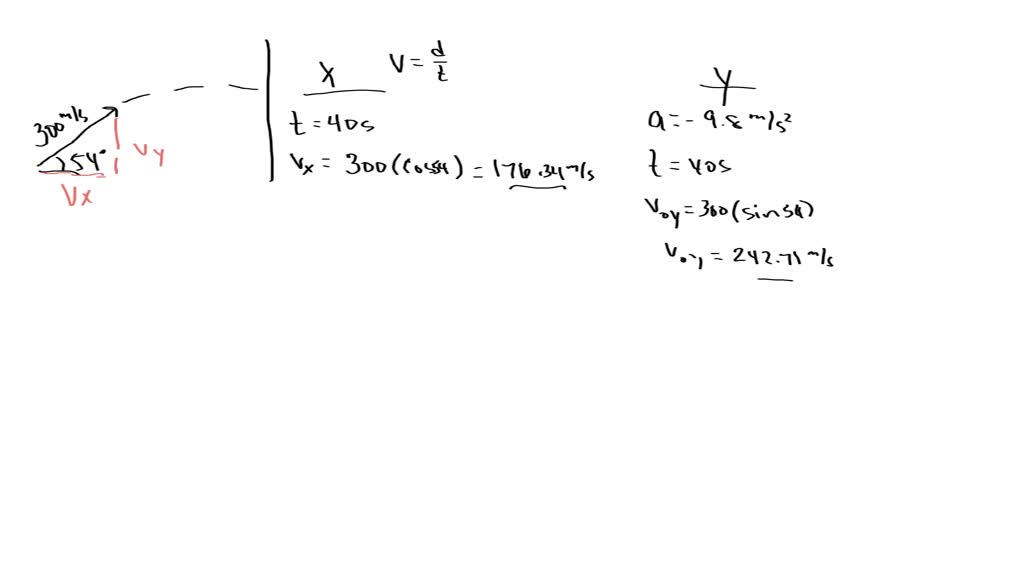 300 m/s
54°
Vy
Vx
X
V = d/t
t = 40s
Vx = 300(cos54) = 176.34 m/s
Y
a = -9.8 m/s²
t = 40s
Voy = 300(sin54)
Voy = 242.71 m/s